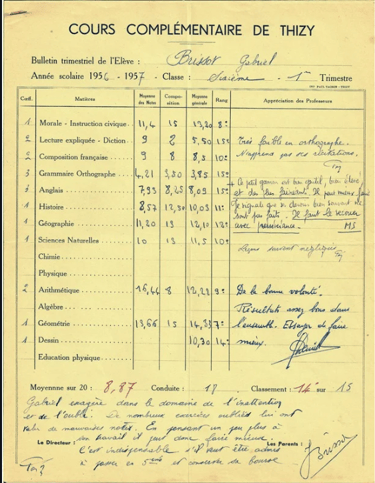 COURS COMPLÉMENTAIRE DE THIZY
Bulletin trimestriel de l'Elève : Brissot Gabriel
Année scolaire 1956 - 1957 - Classe : Sixième - 1er Trimestre
Coef. Matières Moyenne des Notes Composition Moyenne générale Rang Appréciation des Professeurs
1 Morale - Instruction civique 11,4 15 13,20 8e
2 Lecture expliquée - Diction 9 2 5,50 15e Très faible en orthographe.
2 Composition française 9 8 8,5 10e N'apprend pas ses récitations.
3 Grammaire Orthographe 4,21 3,50 3,85 15e
3 Anglais 7,93 8,25 8,09 15e Le petit garçon est bon
1 Histoire 8,57 11e
1 Géographie 11,20 13 12,10 13e sont pas faits. Il faut le secouer
avec persévérance. MS
1 Sciences Naturelles 10 13 11,5 10e Leçons souvent négligées
Chimie
Physique
2 Arithmétique 16,44 8 12,22 9e De la bonne volonté.
Algèbre Résultats assez bons dans
1 Géométrie 13,66 15 14,33 7e l'ensemble. Essayer de faire
1 Dessin 10,30 14e mieux.
Education physique
Moyenne sur 20 : 8,87 Conduite : 18 Classement : 14e sur 15
Gabriel exagère dans le domaine de l'inattention
et de l'oubli. De nombreux exercices oubliés lui ont
valu de mauvaises notes. En pensant un peu plus à
son travail il peut donc faire mieux.
Le Directeur : C'est indispensable s'il veut être admis Les Parents :
à passer en 5ème et concours de bourse
Brissot